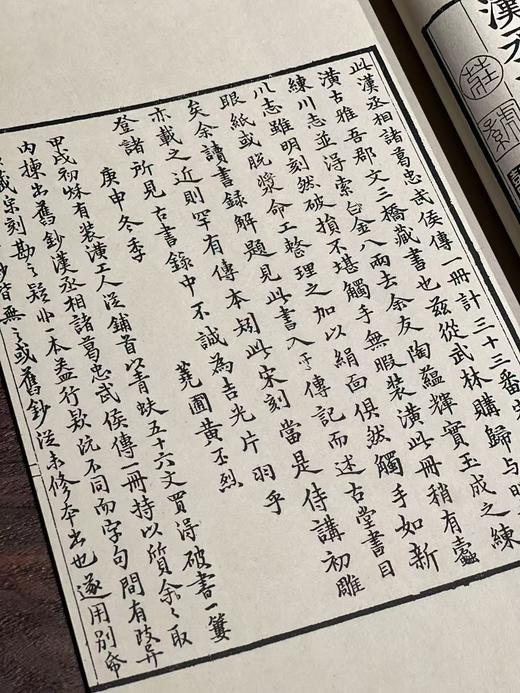 漢丞
此漢丞相諸葛忠武侯傳一冊計三十三番
潢古雅吾郡文三橋藏書也茲從武林購歸与明
練川志並得索白金八兩去余友陶蘊輝實玉成之練
川志雖明刻然破損不堪觸手無暇裝潢此冊稍有蠹
眼紙或脫漿命工整理之加以絹面俱然觸手如新
矣余讀書錄解題見此書入于傳記而述古堂書目
亦載之近則罕有傳本矧此宋刻當是侍講初雕
登諸所見古書錄中不誠為吉光片羽乎
庚申冬季 蕘圃黃丕烈
甲戌初秌有裝潢工人從鋪首以青蚨五十六文買得破書一簍
内揀出舊鈔漢丞相諸葛忠武侯傳一冊持以質余〻取
藏宋刻勘〻疑非一本蓋行款既不同而字句間有歧异
鈔皆無〻或舊鈔從未修本出也遂用别帋